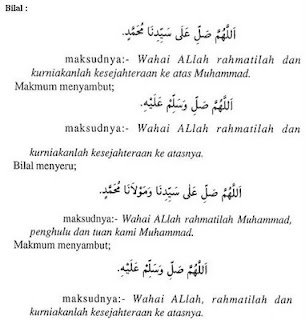 Bilal :
اَللَّهُمَّ صَلِّ عَلَى سَيِّدِنَا مُحَمَّدٍ.
maksudnya:- Wahai ALlah rahmatilah dan
kurniakanlah kesejahteraan ke atas Muhammad.
Makmum menyambut;
اَللَّهُمَّ صَلِّ وَسَلِّمْ عَلَيْهِ.
maksudnya:- Wahai ALlah rahmatilah dan
kurniakanlah kesejateraan ke atasnya.
Bilal menyeru;
اَللَّهُمَّ صَلِّ عَلَى سَيِّدِنَا وَمَوْلَانَا مُحَمَّدٍ.
maksudnya:- Wahai ALlah rahmatilah Muhammad,
penghulu dan tuan kami Muhammad.
Makmum menyambut;
اَللَّهُمَّ صَلِّ وَسَلِّمْ عَلَيْهِ.
maksudnya:- Wahai ALlah, rahmatilah dan
kurniakanlah kesejahteraan ke atasnya.